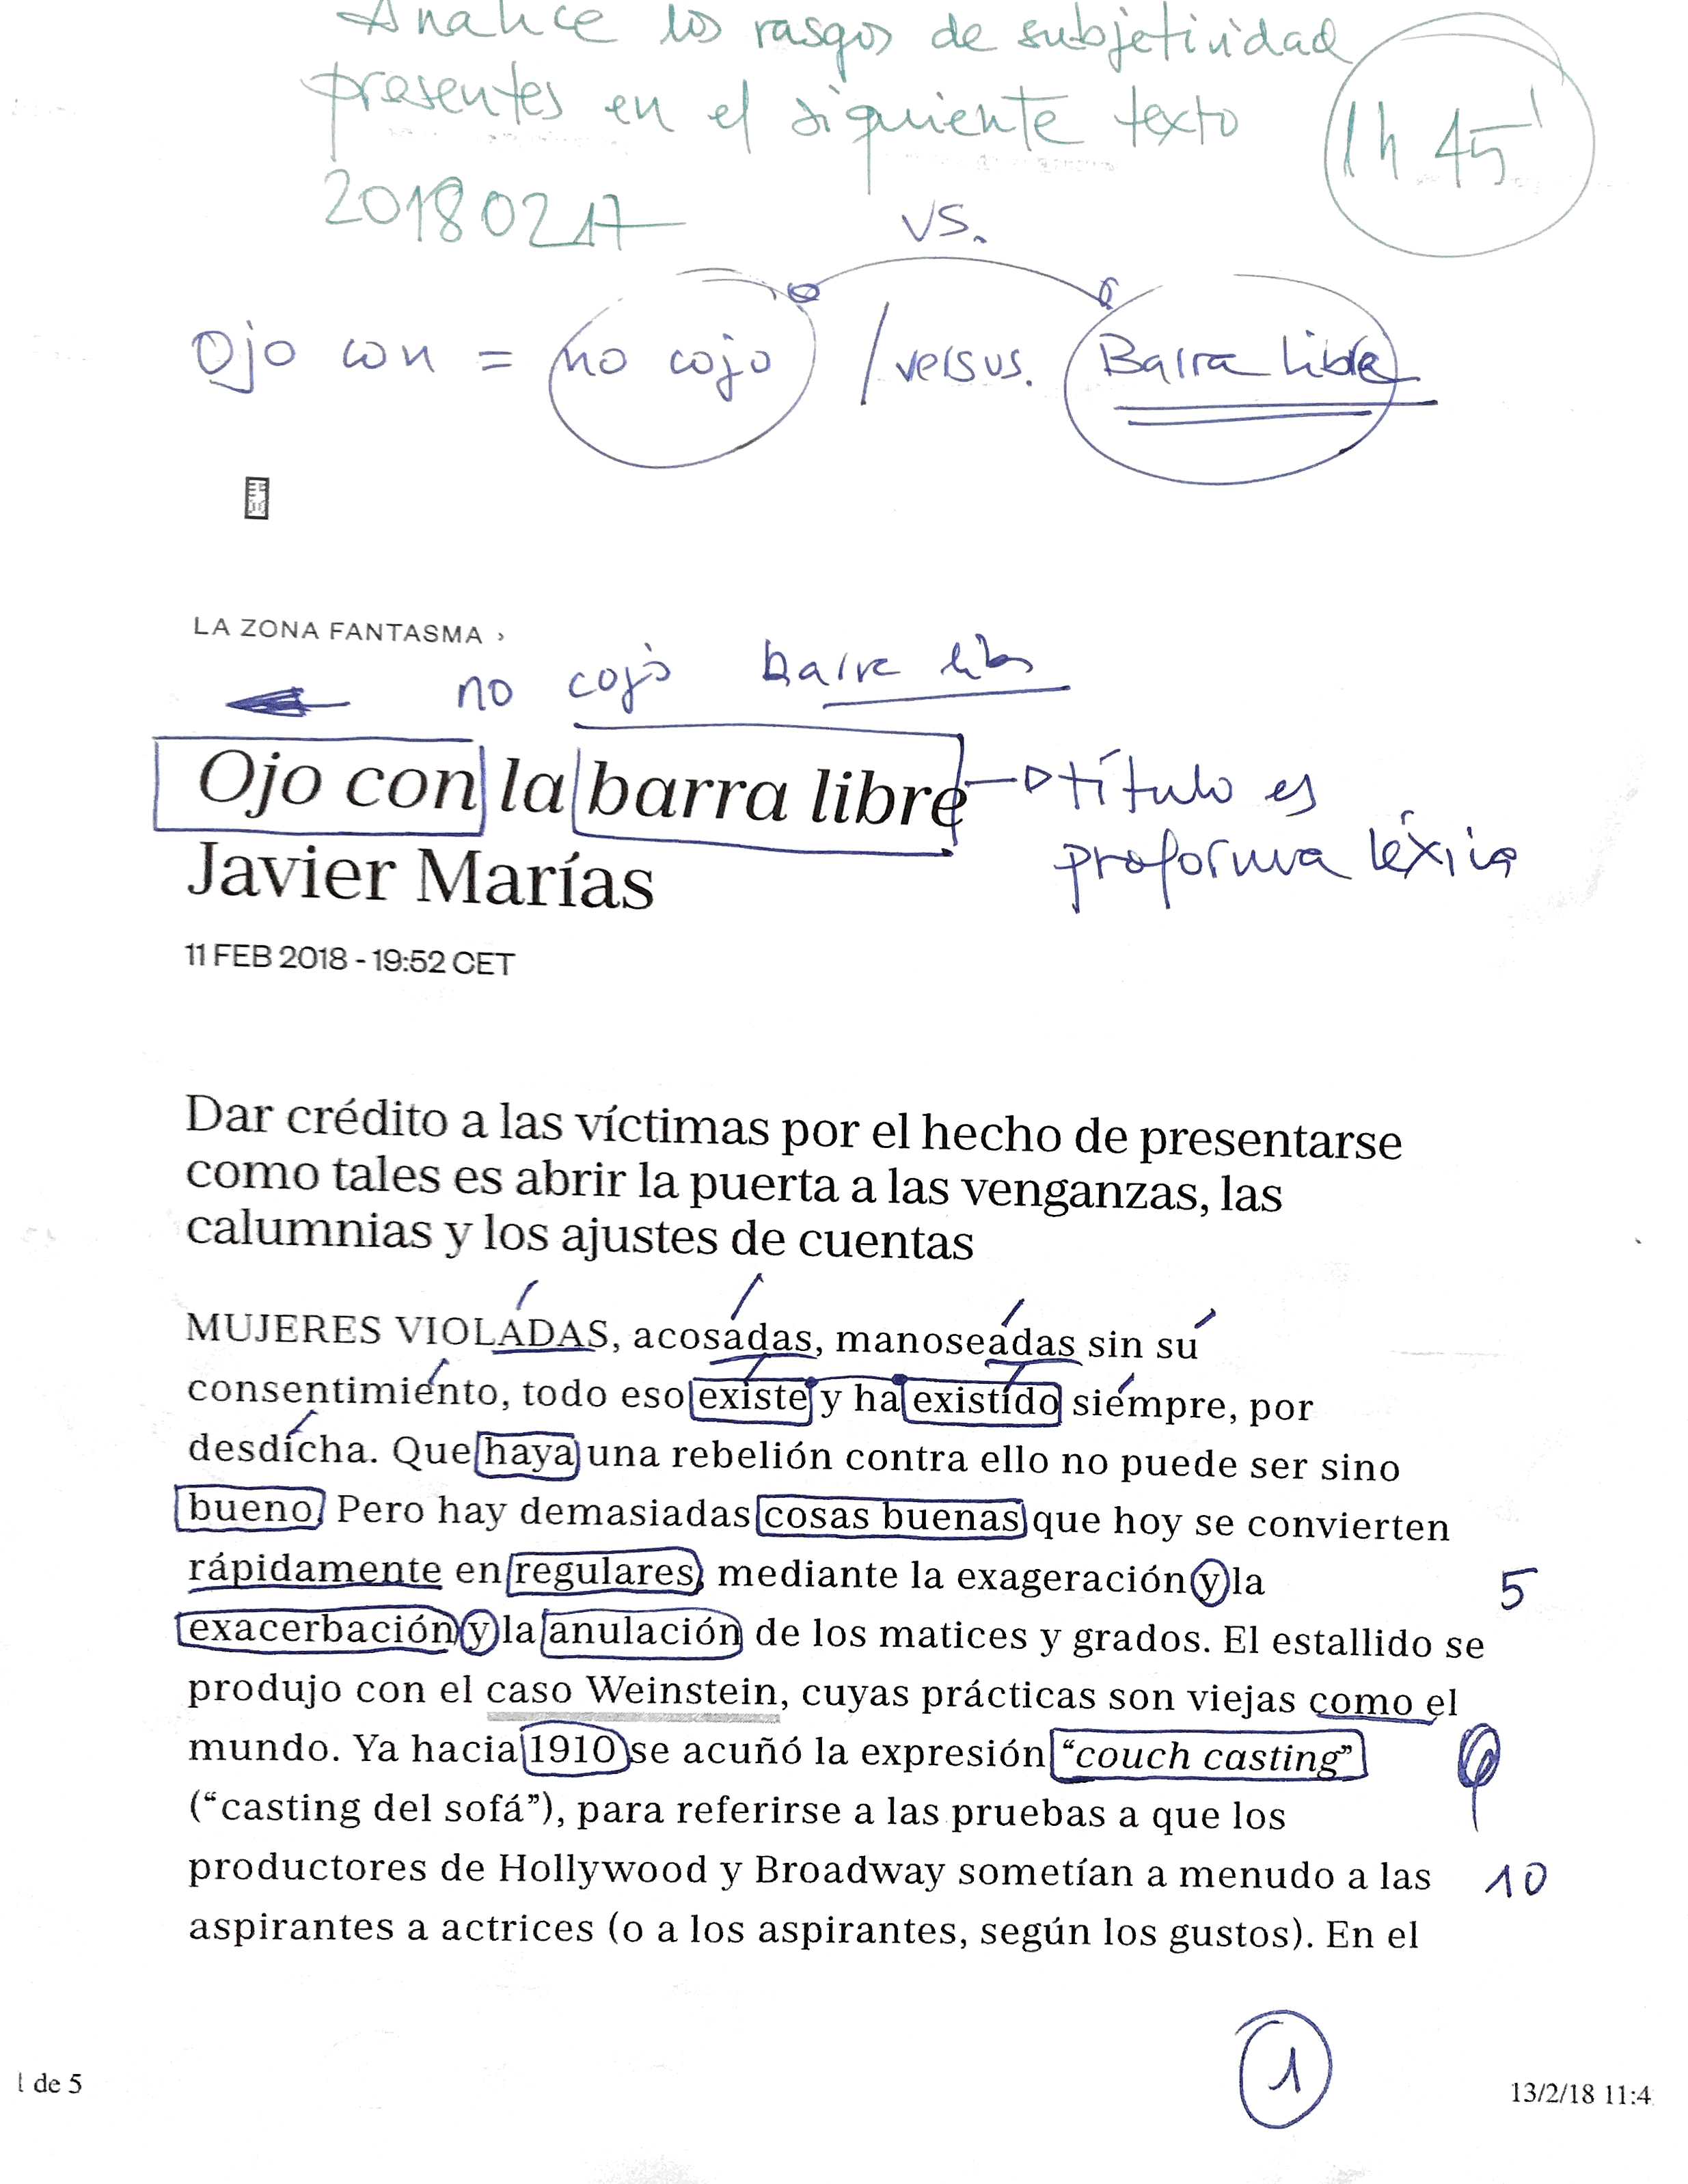 Analice los rasgos de subjetividad
presentes en el siguiente texto
1h 45'
20180217
vs.
Ojo con = no cojo / versus. Barra libre
LA ZONA FANTASMA ›
no cojo barra
Ojo con la barra libre
título es
proforma léxica
Javier Marías
11 FEB 2018 - 19:52 CET
Dar crédito a las víctimas por el hecho de presentarse
como tales es abrir la puerta a las venganzas, las
calumnias y los ajustes de cuentas
MUJERES VIOLADAS, acosadas, manoseadas sin su
consentimiento, todo eso existe y ha existido siempre, por
desdicha. Que haya una rebelión contra ello no puede ser sino
bueno. Pero hay demasiadas cosas buenas que hoy se convierten
rápidamente en regulares, mediante la exageración y la
5
exacerbación y la anulación de los matices y grados. El estallido se
produjo con el caso Weinstein, cuyas prácticas son viejas como el
mundo. Ya hacia 1910 se acuñó la expresión “couch casting”
(“casting del sofá”), para referirse a las pruebas a que los
productores de Hollywood y Broadway sometían a menudo a las
10
aspirantes a actrices (o a los aspirantes, según los gustos). En el
1
1 de 5
13/2/18 11:4